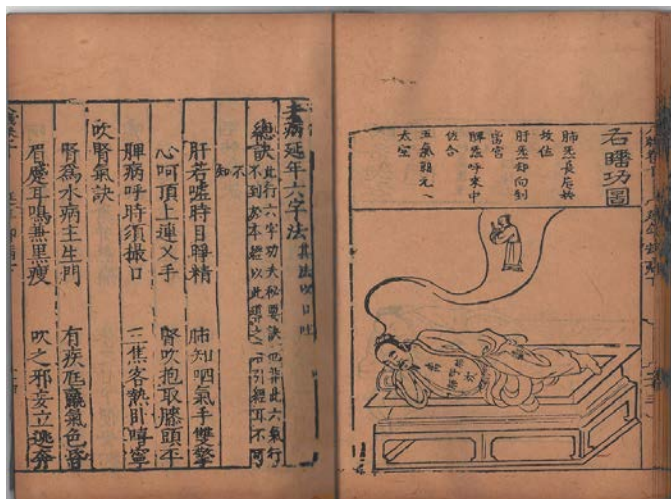 右睡功圖
肺炁長居於
坎位
肝炁却向到
离宮
脾炁呼來中
位合
五氣朝元入
太空
去病延年六字法 其法以口吐
總訣 此行六字功夫秘要訣
肝若噓時目睜精 肺知呬氣手雙擎
心呵頂上連叉手 腎吹抱取膝頭平
脾病呼時須撮口 三焦客熱臥嘻寧
吹腎氣訣
腎爲水病主生門 有疾尪羸氣色昏
眉蹙耳鳴兼黑瘦 吹之邪妄立逃奔